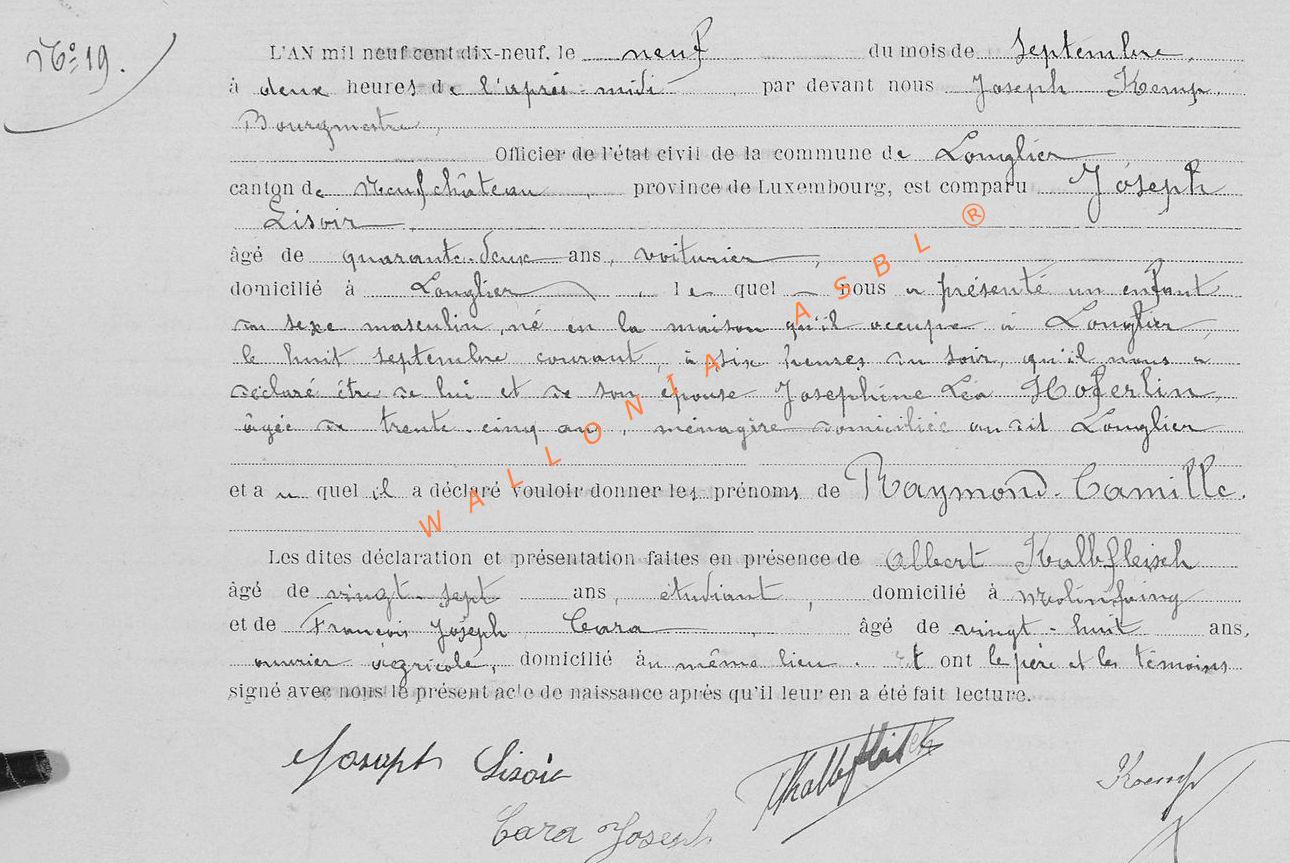 N° 19.
L'AN mil neuf cent dix-neuf, le neuf du mois de septembre,
à deux heures de l'après-midi, par devant nous Joseph Kemp,
Bourgmestre,
Officier de l'état civil de la commune de Longlier
canton de Neufchâteau, province de Luxembourg, est comparu Joseph
Lisoir,
âgé de quarante-deux ans, voiturier,
domicilié à Longlier, lequel nous a présenté un enfant
du sexe masculin, né en la maison qu'il occupe à Longlier,
le huit septembre courant, à six heures du soir, qu'il nous a
déclaré être de lui et de son épouse Josephine Léa Hoferlin,
âgée de trente-cinq ans, ménagère domiciliée au dit Longlier
et auquel il a déclaré vouloir donner les prénoms de Raymond-Camille.
Les dites déclaration et présentation faites en présence de Albert Kalbfleisch
âgé de vingt-sept ans, étudiant, domicilié à Molinfaing
et de François Joseph Cara, âgé de vingt-huit ans,
ouvrier agricole, domicilié au même lieu. Et ont le père et les témoins
signé avec nous le présent acte de naissance après qu'il leur en a été fait lecture.
Joseph Lisoir
Kalbfleisch
Kemp
Cara Joseph
WALLONIA ASBL ®